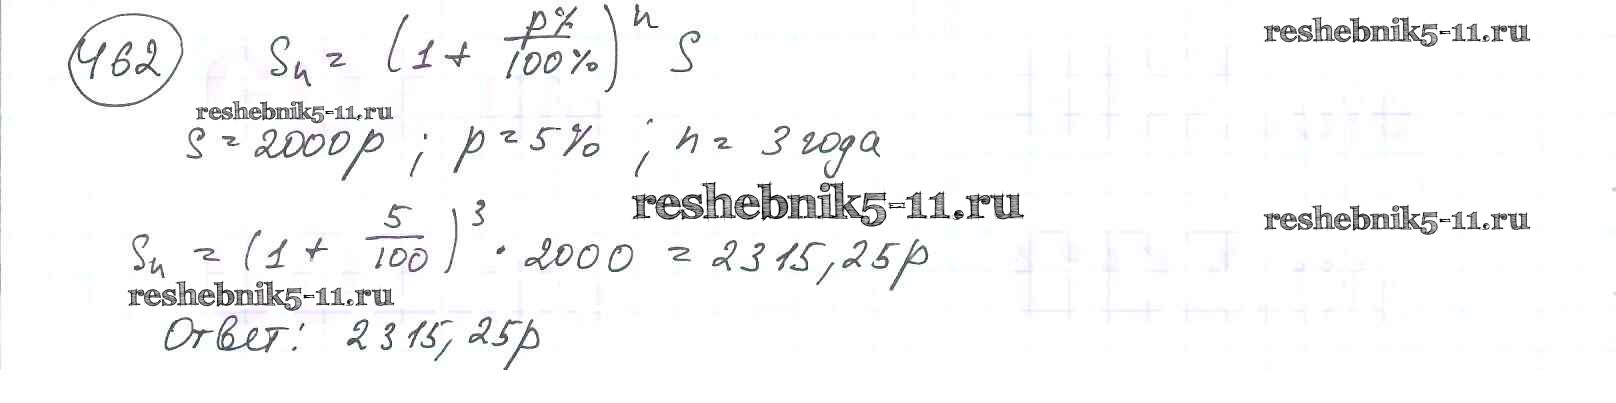 462 Sn = (1 + p%/100%)^n S
reshebnik5-11.ru
reshebnik5-11.ru
S = 2000р ; p = 5% ; n = 3 года
reshebnik5-11.ru
reshebnik5-11.ru
Sn = (1 + 5/100)^3 · 2000 = 2315,25р
reshebnik5-11.ru
Ответ: 2315,25р